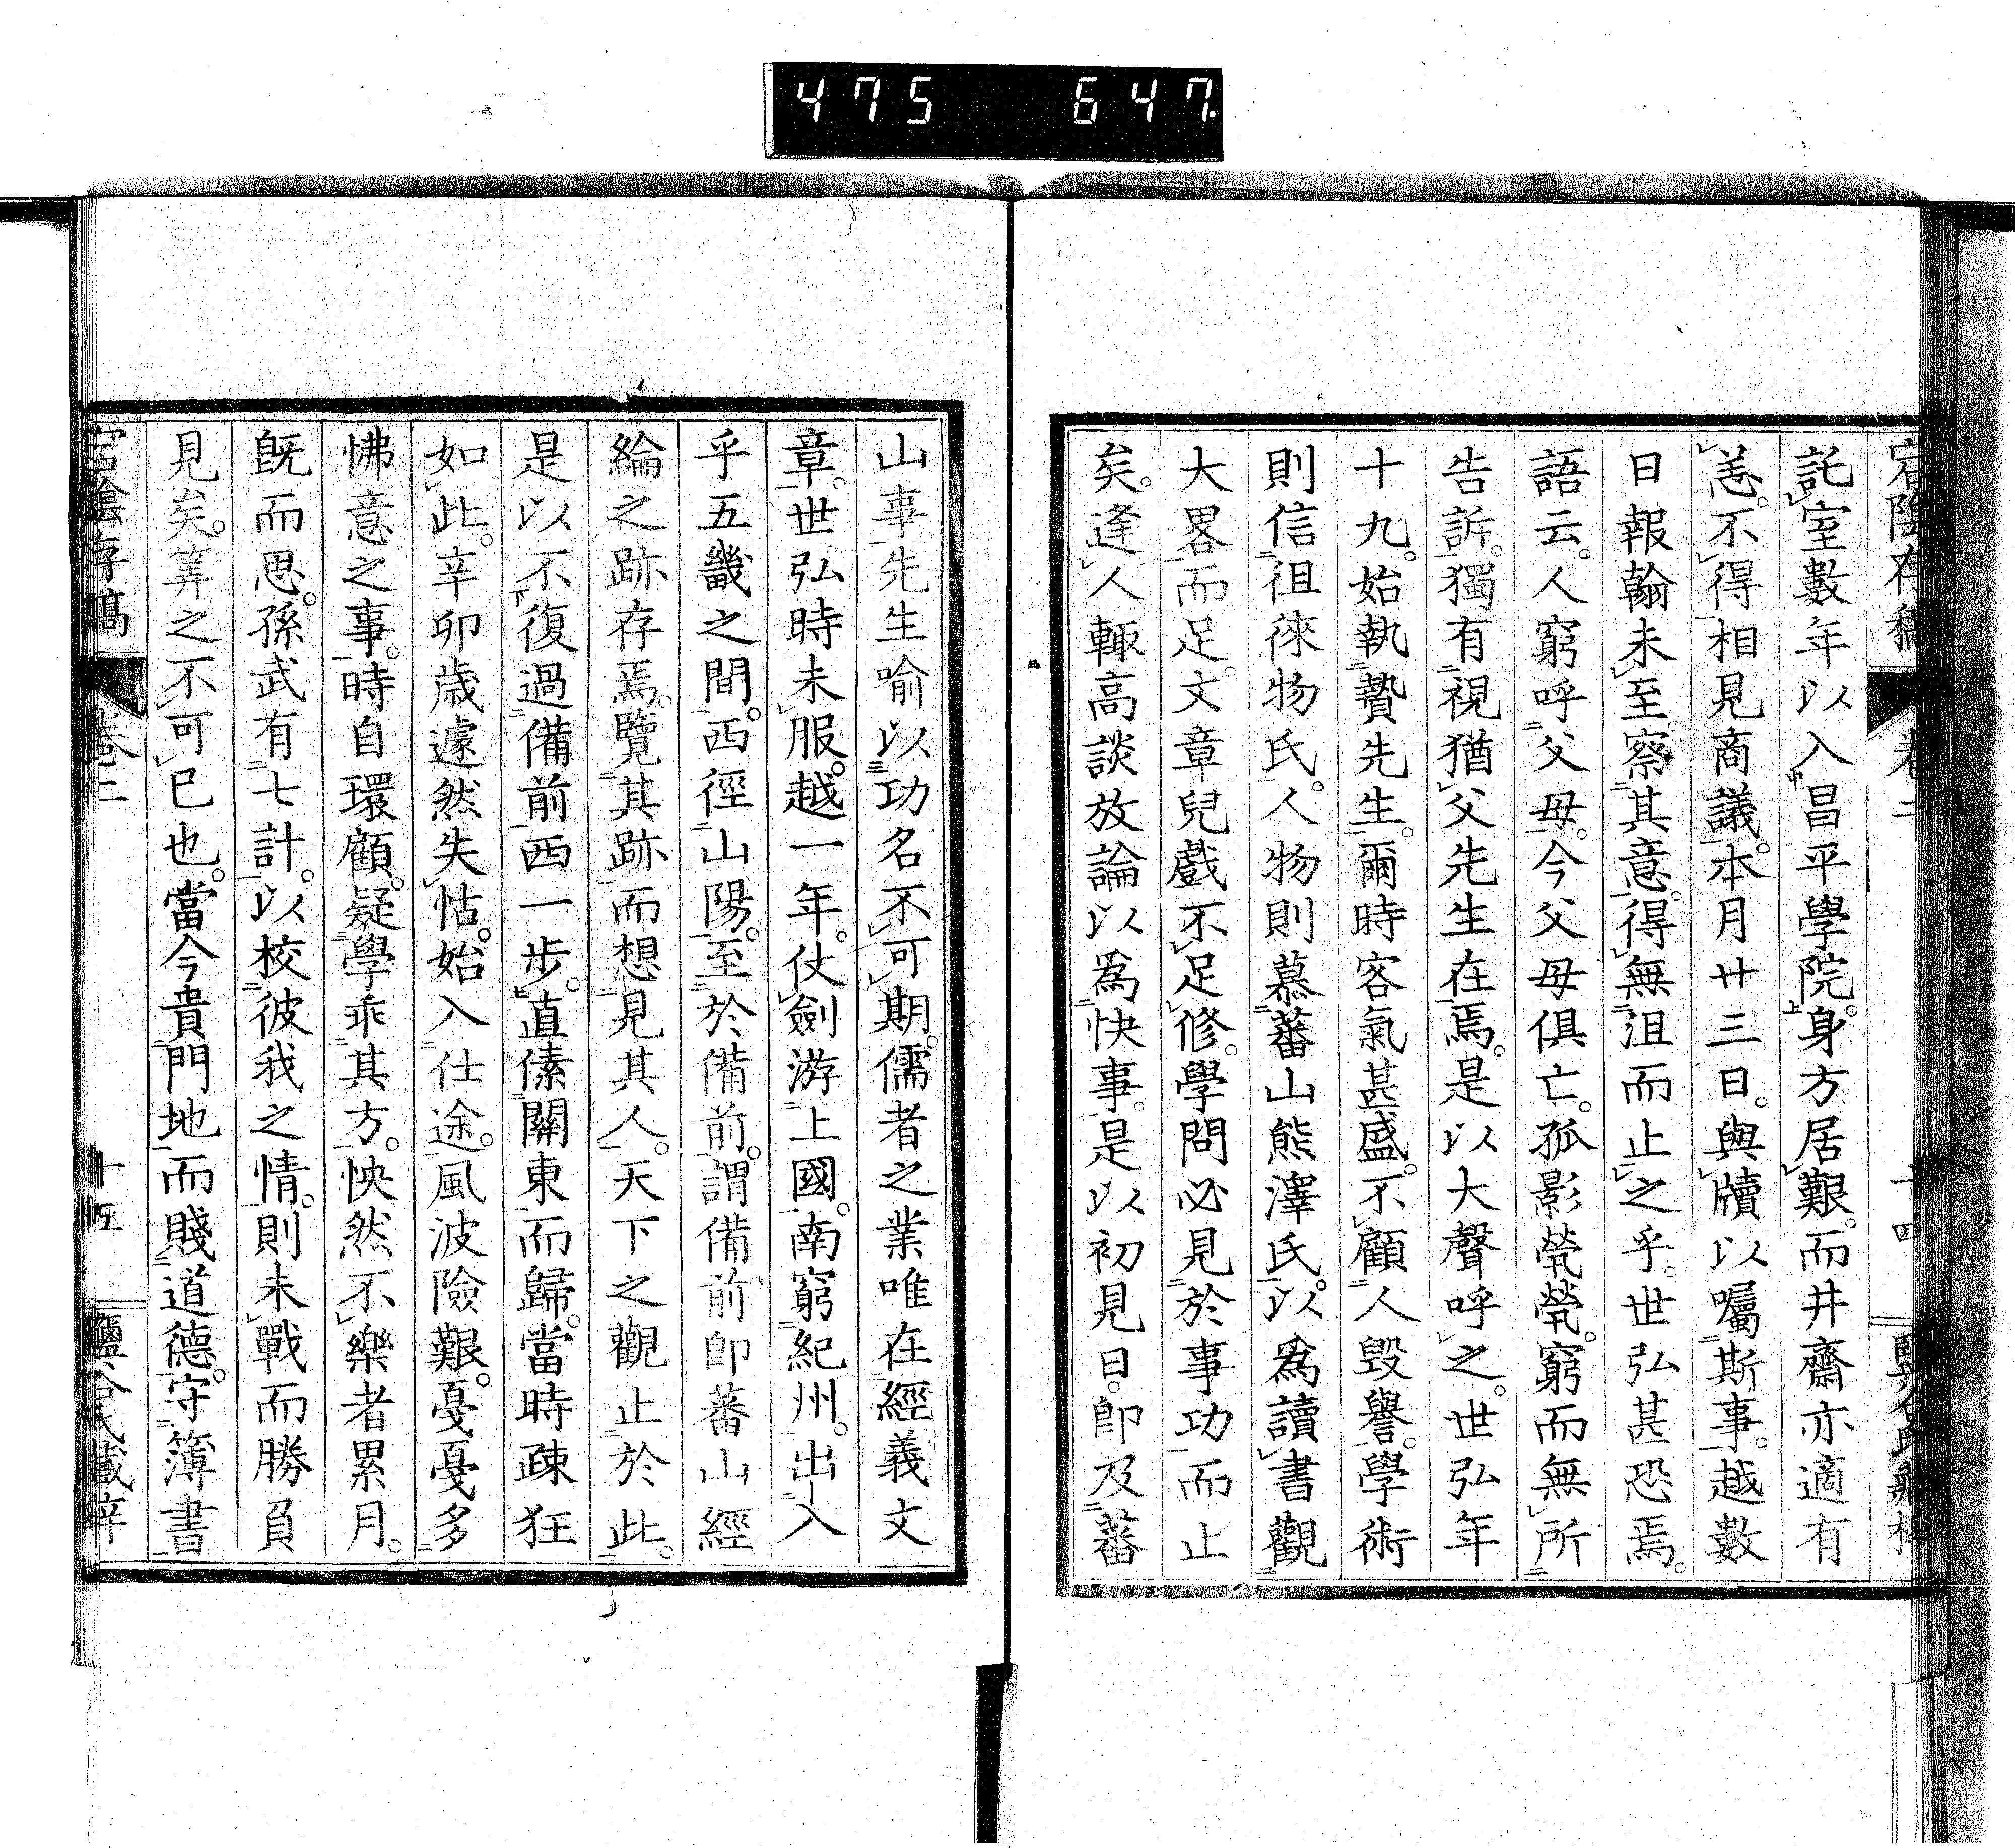 475 647
宕陰存稿 卷二 十四
託室數年以入昌平學院。身方居艱。而井齋亦適有
恙。不得相見商議。本月廿三日。與牘以囑斯事。越數
日報翰未至察其意。得無沮而止之乎。世弘甚恐焉。
語云。人窮呼父母。今父母俱亡。孤影煢煢。窮而無所
告訴。獨有視猶父先生在焉。是以大聲呼之。世弘年
十九。始執贄先生。爾時客氣甚盛。不顧人毀譽。學術
則信徂徠物氏。人物則慕蕃山熊澤氏。以爲讀書觀
大畧而足。文章兒戲不足修。學問必見於事功而止
矣。逢人輙高談放論以爲快事。是以初見日。卽及蕃
山事。先生喻以功名不可期。儒者之業唯在經義文
章。世弘時未服。越一年。仗劍游上國。南窮紀州。出入
乎五畿之間。西徑山陽。至於備前。謂備前卽蕃山經
綸之跡存焉。覽其跡而想見其人。天下之觀止於此。
是以不復過備前西一步。直傃關東而歸。當時疎狂
如此。辛卯歲遽然失怙。始入仕途。風波險艱。戞戞多
怫意之事。時自環顧。疑學乖其方。怏然不樂者累月。
旣而思。孫武有七計。以校彼我之情。則未戰而勝負
見矣。筭之不可已也。當今貴門地而賤道德。守簿書
宕陰存稿 卷二 十五